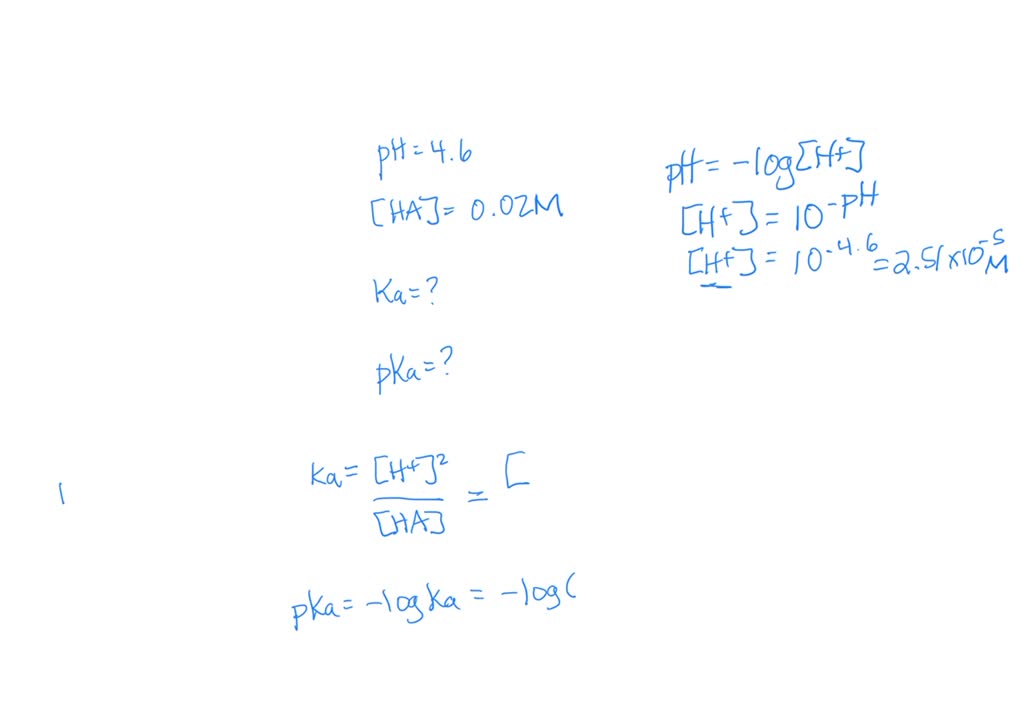 pH = 4.6
[HA] = 0.02M
Ka = ?
pKa = ?
pH = -log[H+]
[H+] = 10^-pH
[H+] = 10^-4.6 = 2.51×10^-5 M
Ka = [H+]² / [HA] = [
pKa = -log Ka = -log(